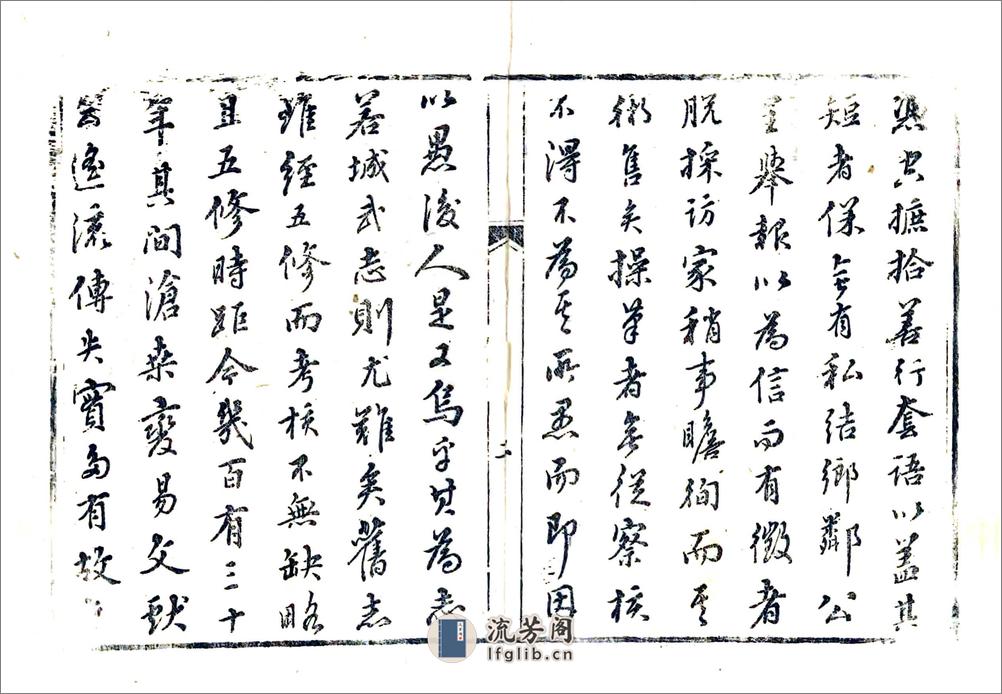 憑空摭拾善行套語以蓋其
短者保無有私結鄉鄰公
呈舉報以為信而有徵者
脫採訪家稍事瞻徇而其
術售矣操筆者無從察核
不得不為其所愚而即因
二
以愚後人是又烏乎其為志
若城武志則尤難矣舊志
雖經五修而考核不無缺略
且五修時距今幾百有三十
年其間滄桑變易文獻
遙深傳失實多有故
流芳阁
lfglib.cn